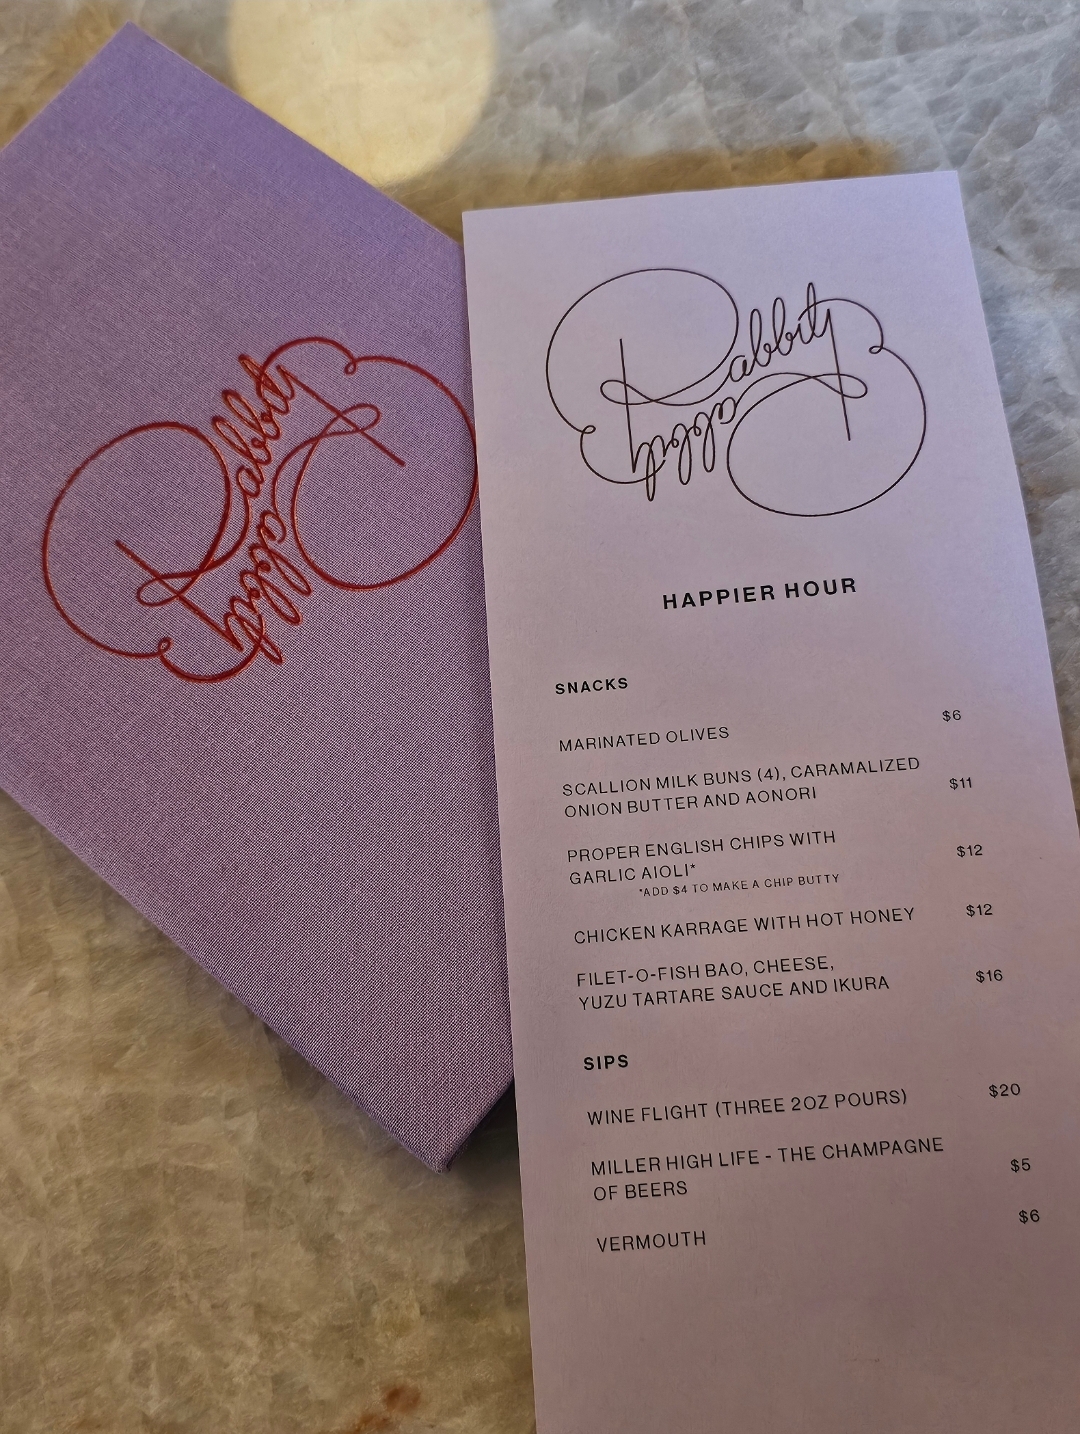 Rabbit Rabbit
Rabbit
Rabbit
HAPPIER HOUR
SNACKS
MARINATED OLIVES $6
SCALLION MILK BUNS (4), CARAMALIZED
ONION BUTTER AND AONORI $11
PROPER ENGLISH CHIPS WITH
GARLIC AIOLI* $12
*ADD $4 TO MAKE A CHIP BUTTY
CHICKEN KARRAGE WITH HOT HONEY $12
FILET-O-FISH BAO, CHEESE,
YUZU TARTARE SAUCE AND IKURA $16
SIPS
WINE FLIGHT (THREE 2OZ POURS) $20
MILLER HIGH LIFE - THE CHAMPAGNE
OF BEERS $5
VERMOUTH $6